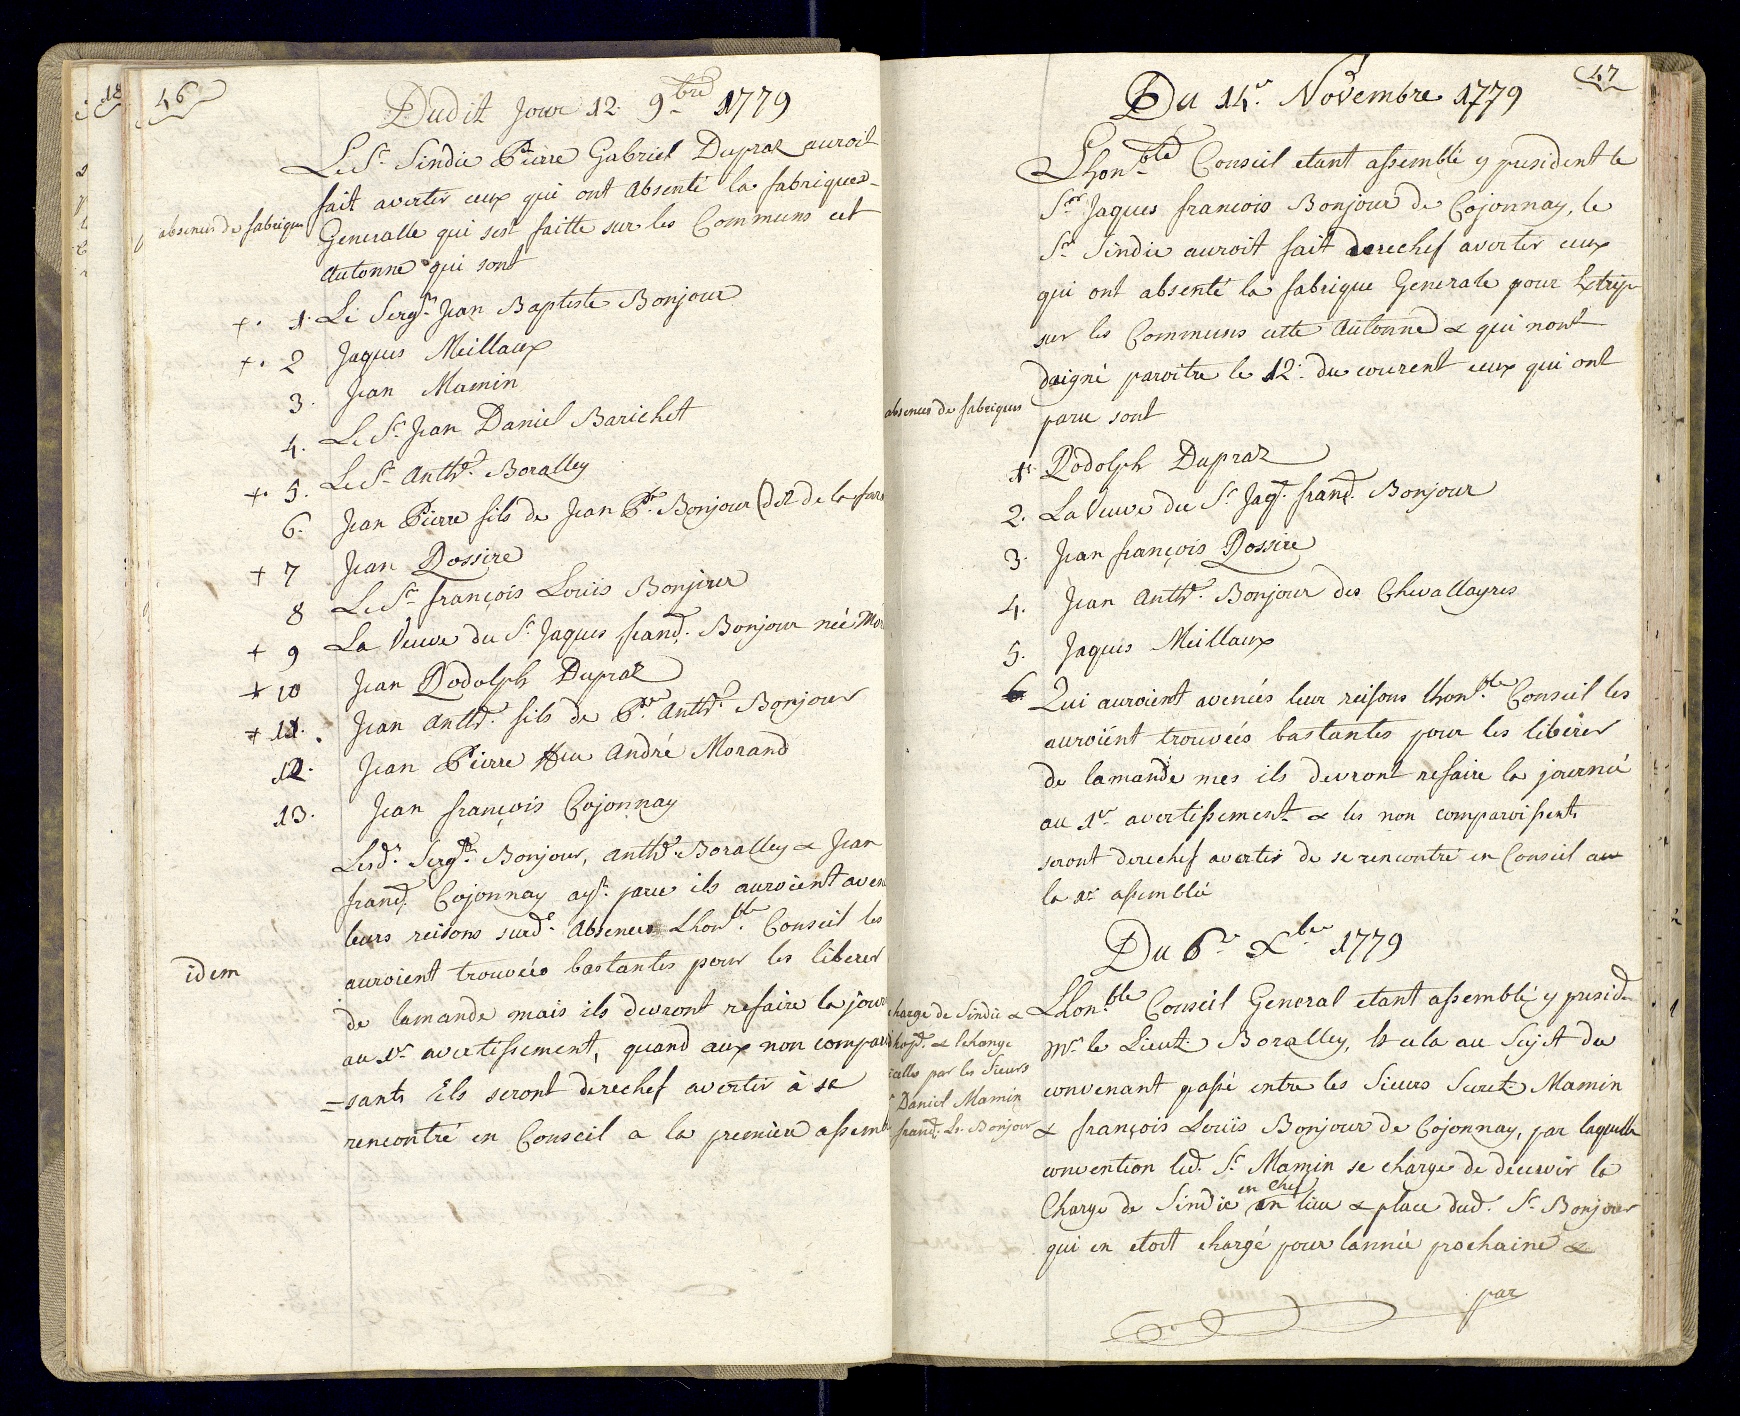 46
Dudit Jour 12. 9bre 1779
Le Sr. Sindic Pierre Gabriel Dupraz auroit
fait avertir ceux qui ont absenté la fabrique
absences de fabriques
Generalle qui sest faitte sur les Communs cet
Autonne qui sont
+. 1. Le Sergt. Jean Baptiste Bonjour
+. 2 Jaques Meillaux
3. Jean Mamin
4. Le Sr. Jean Daniel Barichet
+. 5. Le Sr. Anthe. Boralley
6. Jean Pierre fils de Jean Pre. Bonjour (dit de la
+ 7 Jean Dossire
8 Le Sr. françois Louis Bonjour
+ 9 La Veuve du Sr. Jaques franç. Bonjour née
+ 10 Jean Rodolph Dupraz
+ 11. Jean Anthe. fils de Pre. Anthe. Bonjour
12. Jean Pierre feu André Morand
13. Jean françois Cojonnay
Lesd. Sergt. Bonjour, Anthe. Boralley & Jean
franç. Cojonnay ayt. paru ils auroient aven
leurs reisons surd. absences Lhonble. Conseil les
auroient trouvées bastantes pour les liberer
idem
de lamande mais ils devront refaire la jour
au 1er. avertissement, quand aux non comparoi
=sants Ils seront derechef avertir à se
rencontré en Conseil a la première assemb
47
Du 14e. Novembre 1779
Lhonble Conseil etant assemblé y president le
Sr. Jaques francois Bonjour de Cojonnay, le
Sr. Sindic auroit fait derechef avertir ceux
qui ont absenté la fabrique Generale pour
sur les Communs cette Autonne & qui nont
daigné paroitre le 12. du courent ceux qui ont
absences de fabriques
paru sont
1. Rodolph Dupraz
2. La Veuve du Sr. Jaq. franç. Bonjour
3. Jean françois Dossire
4. Jean Anthe. Bonjour des Chevallayres
5. Jaques Meillaux
Qui auroient avencés leur reisons Lhonble. Conseil les
auroient trouvées bastantes pour les libérer
de lamande mes ils devront refaire la journée
au 1er. avertissement & les non comparoissents
seront derechef avertir de se rencontré en Conseil au
la 1re assemblée
Du 6e Xbre 1779
Lhonble Conseil General etant assemblé y presid.
Mr. le Lieut. Boralley, & cela au Sujet du
convenant passé entre les Sieurs Secret. Mamin
& françois Louis Bonjour de Cojonnay, par laquelle
convention led. Sr. Mamin se charge de decervir la
Charge de Sindic en chef en lieu & place dud. Sr. Bonjour
qui en etoit chargé pour lannée prochaine &
par
charge de Sindic &
& lechange
icelle par les Sieurs
Daniel Mamin
franç. Ls. Bonjour